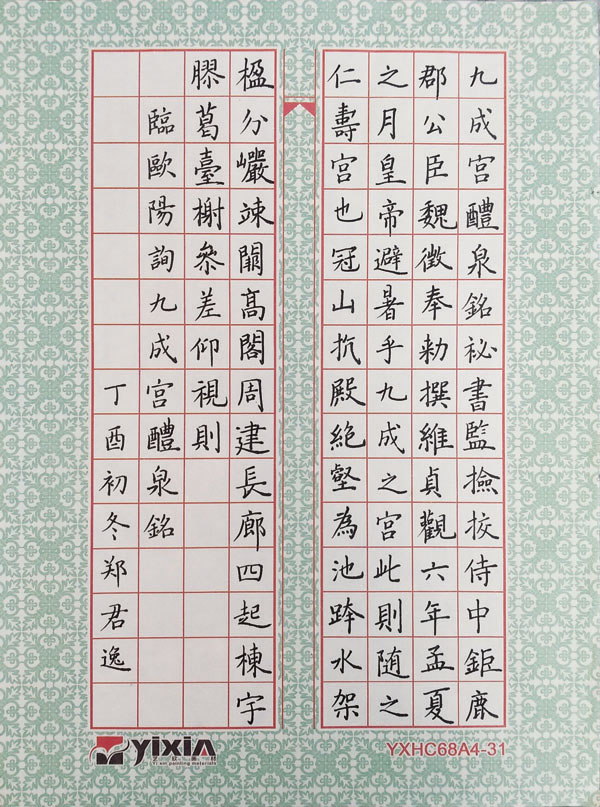 九成宮醴泉銘祕書監撿挍侍中鉅鹿
郡公臣魏徵奉勑撰維貞觀六年孟夏
之月皇帝避暑乎九成之宮此則随之
仁壽宮也冠山抗殿絶壑為池跨水架
楹分巗竦闕髙閣周建長廊四起棟宇
膠葛臺榭叅差仰視則
臨歐陽詢九成宮醴泉銘
丁酉初冬郑君逸
yixin
Yi xin painting materials
YXHC68A4-31